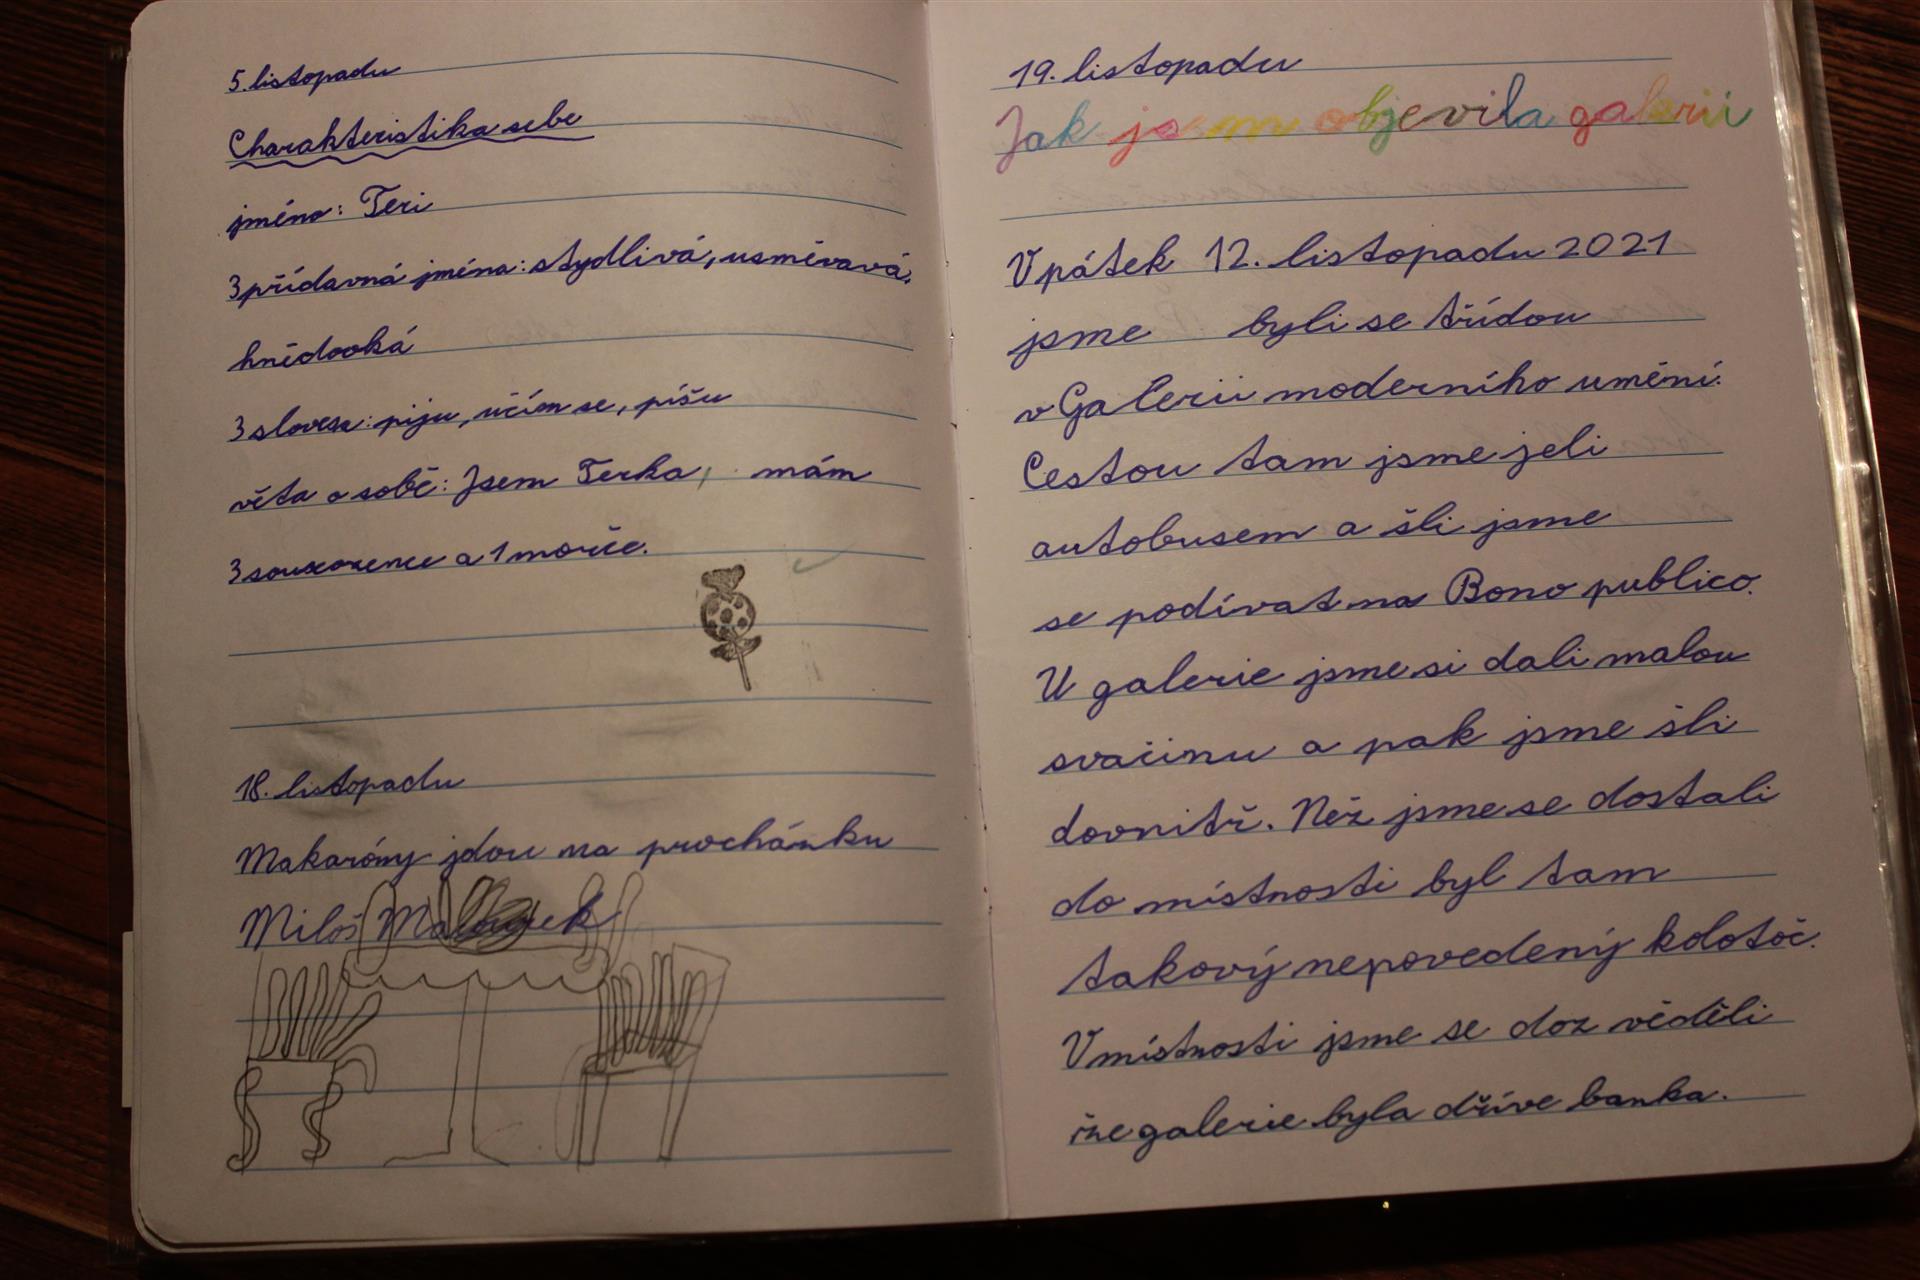 5. listopadu
Charakteristika sebe
jméno: Teri
3 přídavná jména: stydlivá, usměvavá,
hnědooká
3 slovesa: piju, učím se, píšu
věta o sobě: Jsem Terka, mám
3 sourozence a 1 morče.
18. listopadu
Makaróny jdou na procházku
Miloš Macourek
19. listopadu
Jak jsem objevila galerii
V pátek 12. listopadu 2021
jsme byli se třídou
v Galerii moderního umění.
Cestou tam jsme jeli
autobusem a šli jsme
se podívat na Bono publico.
U galerie jsme si dali malou
svačinu a pak jsme šli
dovnitř. Než jsme se dostali
do místnosti byl tam
takový nepovedený kolotoč.
V místnosti jsme se doz věděli
že galerie byla dříve banka.